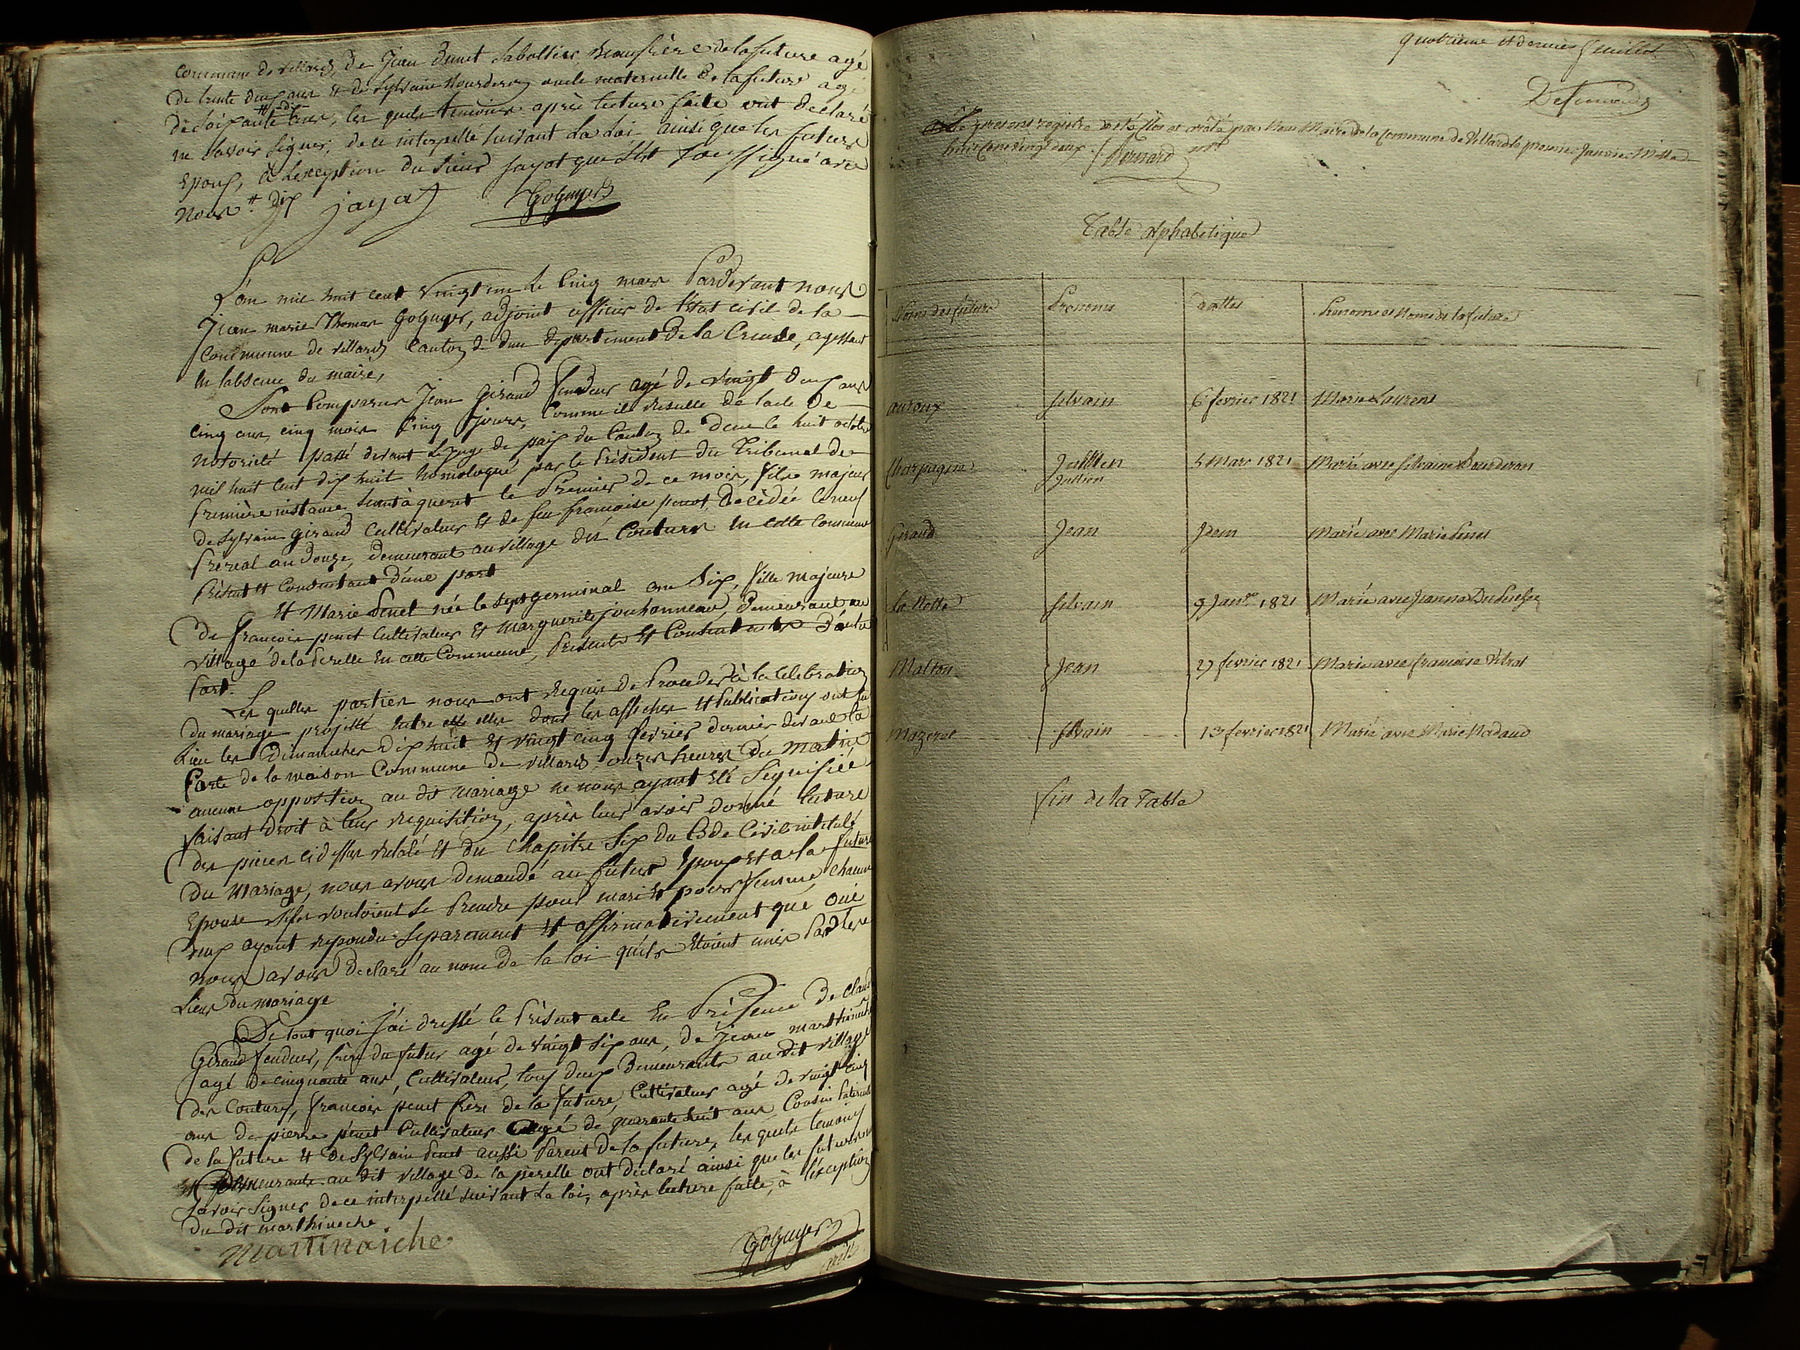 commune de villard, de Jean Benet Sabottier, beaufrère de la future agé
de trente deux ans et de Sylvain Bourderon oncle maternelle de la future agé
de soixante ans, les quels temoins après lecture faite ont déclaré
ne savoir signer, de ce interpellé suivant la loi ainsi que les futurs
Epoux, à l'exception du sieur jayot qui s'est soussigné avec
nous # dix jayot Goguyer
L'an mil huit cent vingt un le cinq mars Pardevant nous
Jean marie Thomas Goguyer, adjoint officier de l'état civil de la
Commune de villard Canton de dun departement de la Creuse, agissant
en labsence du maire,
Sont Comparus Jean Giraud fendeur agé de vingt deux ans
cinq mois cinq jours, comme il resulte de l'acte de
notoriété passé devant le juge de paix du Canton de Dun le huit octobre
mil huit cent dix huit homologué par le Président du Tribunal de
Première instance le premier de ce mois, fils majeur
de Sylvain Giraud Cultivateur et de feu françoise penot Decédée le neuf
Prereal an Douze, demeurant au village des Coutures en cette commune
Présent et Consentant d'une part
et Marie Penet née le sept germinal an Six, fille majeure
de françois penet Cultivateur et marguerite jouhanneau, demeurant au
village de la perelle en cette Commune, Présente et Consentante d'autre
Part.
Les quelles parties nous ont requis de Proceder à la Célébration
du mariage projetté entre elles dont les affiches et Publications ont eu
Lieu les Dimanches dix huit et vingt cinq février dernier devant la
Porte de la maison Commune de villard, onze heures du matin
aucune opposition au dit mariage ne nous ayant été signifiée
faisant droit à leur requisition, après leur avoir donné lecture
des pièces ci dessus relaté et du Chapitre Six du Code Civil intitulé
Du Mariage, nous avons demandé au futur Epoux et a la future
Epouse s'ils vouloient se Prendre pour mari et pour femme chacun
eux ayant repondu Séparement et affirmativement que oui
nous avons declaré au nom de la loi qu'ils étoient unis Par les
Liens du mariage
De tout quoi j'ai dressé le Présent acte En Présence de claude
Giraud fendeur, frère du futur agé de vingt six ans, de Jean marthineche
agé de cinquante ans, Cultivateur, tous deux Demeurants au dit village
des Coutures, françois penet frère de la future, Cultivateur agé de vingt cinq
ans de pierre penet Cultivateur agé de quarante huit ans Cousin Paternel
de la future et de Sylvain Penet aussi Parent de la future, les quels temoins
et Demeurants au dit village de la perelle ont déclaré ainsi que les futurs ne
savoir signer de ce interpellé suivant la loi, après lecture faite, à l'exception
du dit marthineche.
Martinaiche Goguyer
quatrième et dernier feuillet
Le present registre a été Clos et arrêté par Nous Maire de la Commune de Villard le premier Janvier Mille
huit Cent vingt deux Renard
Table alphabetique
Noms des future Prenoms Dattes Prenoms et Noms de la future
auroux Silvain 6 fevrier 1821 Marie Laurent
Charpagne Justtien 5 Mars 1821 Marié avec Silvaine Bourderon
Justien
Giraud Jean Idem Marié avec Marie Penet
La Motte Silvain 9 Janer 1821 Marié avec Jeanne
Malton Jean 27 fevrier 1821 Marié avec françoise Vitrat
Mazeret Silvain 13 fevrier 1821 Marié avec Marie Nadaud
fin de la Table